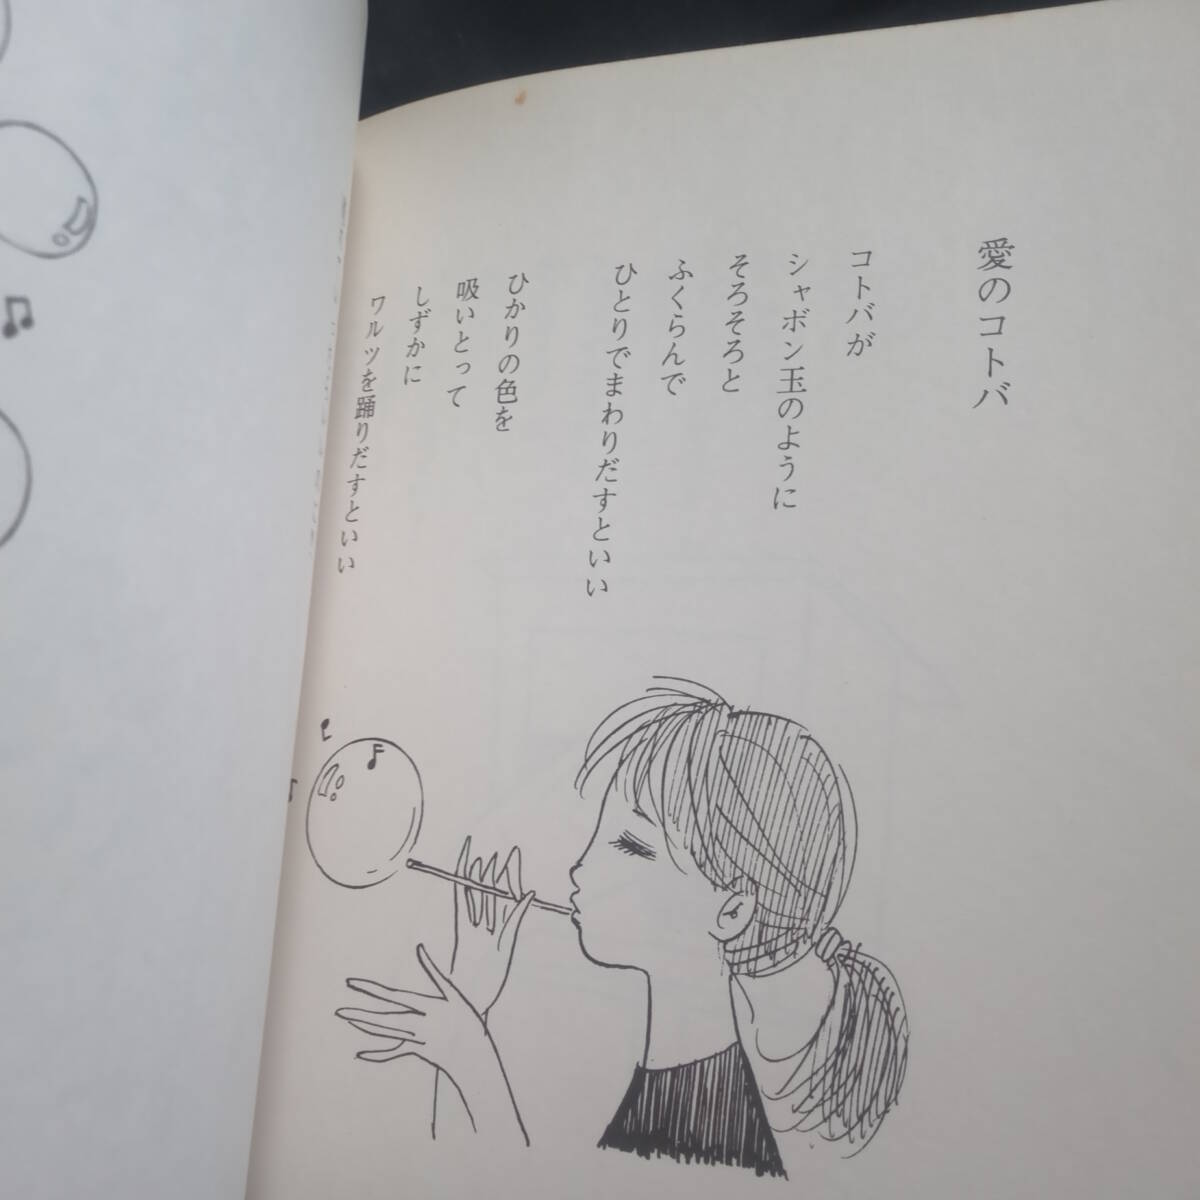 愛のコトバ
コトバが
シャボン玉のように
そろそろと
ふくらんで
ひとりでまわりだすといい
ひかりの色を
吸いとって
しずかに
ワルツを踊りだすといい